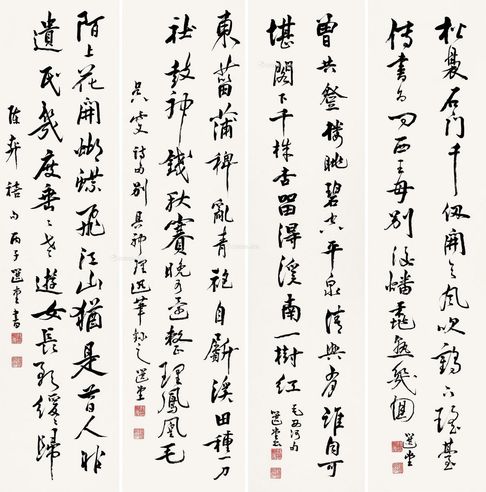 松石门千仞開天风吹鶴下瑤臺
傳書為問西王母別後蟠桃熟幾回 選堂
曾共登樓眺碧空平泉清興有誰同可
堪閣下千株留得溪南一樹紅
毛西河句
選堂書
東菑蒲稗亂青袍自斸溪田種一刀
社鼓神錢秋賽晚可憐整理鳳凰毛
吳雯詩句別具神理選筆鈔之 選堂
陌上花開蝴蝶飛江山猶是昔人非
遺民幾度垂垂老遊女長歌緩緩歸
陳奕禧句丙子選堂書